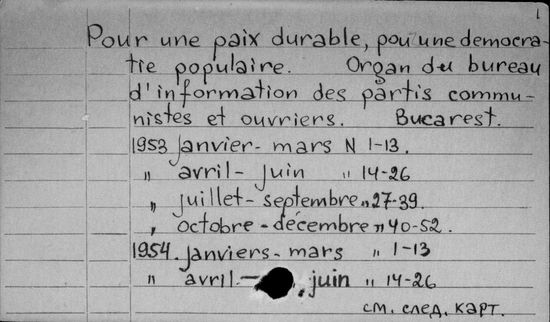 1
Pour une paix durable, pou une democra-
tie populaire. Organ du bureau
d'information des partis commu-
nistes et ouvriers. Bucarest.
1953 janvier - mars N 1-13.
" avril - juin " 14-26
" juillet - septembre " 27-39.
" octobre - décembre " 40-52.
1954. janviers - mars " 1-13
" avril - juin " 14-26
см. след. карт.